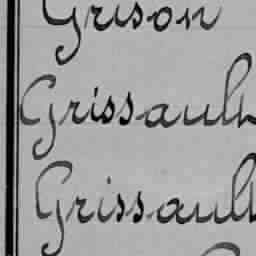 Grison
Grissault
Grissault